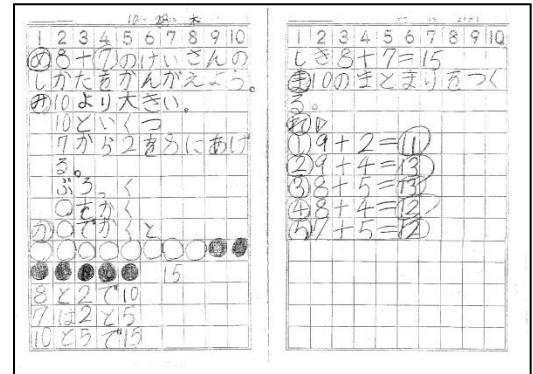 10 28 木
1 2 3 4 5 6 7 8 9 10
め 8+7のけいさんの
しかたをかんがえよう。
み 10より大きい。
10といくつ
7から2を8にあげ
る。
ぶろっく
○でかく
か ○でかくと
15
8と2で10
7は2と5
10と5で15
1 2 3 4 5 6 7 8 9 10
しき8+7=15
ま 10のまとまりをつく
る。
① 9+2=11
② 9+4=13
③ 8+5=13
④ 8+4=12
⑤ 7+5=12